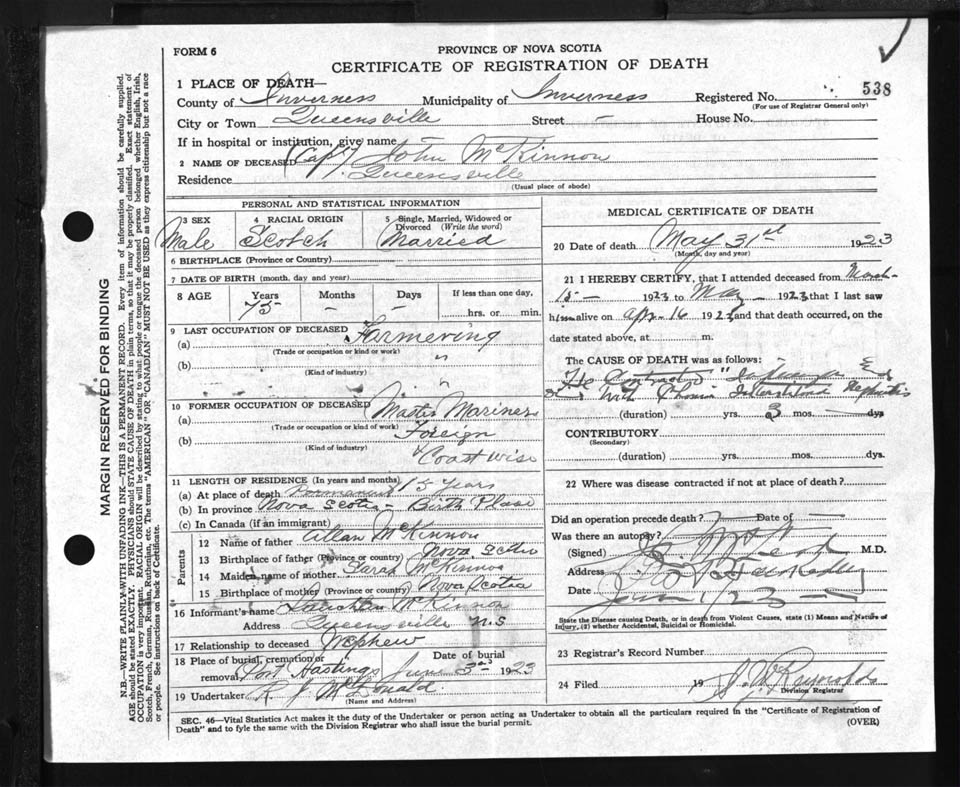 FORM 6
PROVINCE OF NOVA SCOTIA
CERTIFICATE OF REGISTRATION OF DEATH
538
1 PLACE OF DEATH—
County of Inverness Municipality of Inverness Registered No.
(For use of Registrar General only)
City or Town Queensville Street — House No.
If in hospital or institution, give name —
2 NAME OF DECEASED (Capt) John McKinnon
Residence Queensville
(Usual place of abode)
PERSONAL AND STATISTICAL INFORMATION
3 SEX 4 RACIAL ORIGIN 5 Single, Married, Widowed or Divorced (Write the word)
Male Scotch Married
6 BIRTHPLACE (Province or Country)
7 DATE OF BIRTH (month, day and year)
8 AGE Years Months Days If less than one day,
75 — — hrs. or min.
9 LAST OCCUPATION OF DECEASED
(a) Farmering
(Trade or occupation or kind or work)
(b) "
(Kind of industry)
10 FORMER OCCUPATION OF DECEASED "
(a) Master Mariner
(Trade or occupation or kind of work)
(b) Foreign
(Kind of industry)
Coastwise
11 LENGTH OF RESIDENCE (In years and months)
(a) At place of death Permanent 15 years
(b) In province Nova Scotia — Birth Place
(c) In Canada (if an immigrant)
Parents
12 Name of father Allan McKinnon
13 Birthplace of father (Province or country) Nova Scotia
14 Maiden name of mother Sarah McKinnon
15 Birthplace of mother (Province or country) Nova Scotia
16 Informant's name McKinnon
Address Queensville N.S
17 Relationship to deceased Nephew
18 Place of burial, cremation or removal Port Hastings Date of burial June 3rd 1923
19 Undertaker McDonald
(Name and Address)
MEDICAL CERTIFICATE OF DEATH
20 Date of death May 31st 1923
(Month, day and year)
21 I HEREBY CERTIFY, that I attended deceased from March
15— 1923 to May — 1923 that I last saw
him alive on Apr. 16 1923 and that death occurred, on
date stated above, at m.
The CAUSE OF DEATH was as follows:
He Contracted
with Chronic Interstitial Nephritis
(duration) yrs. 3 mos. — dys
CONTRIBUTORY
(Secondary)
(duration) yrs. mos. dys.
22 Where was disease contracted if not at place of death ?
Did an operation precede death? — Date of —
Was there an autopsy?
(Signed) M.D.
Address
Date June 1/23
State the Disease causing Death, or in death from Violent Causes, state (1) Means and Nature of
Injury, (2) whether Accidental, Suicidal or Homicidal.
23 Registrar's Record Number
24 Filed 19
Division Registrar
SEC. 46—Vital Statistics Act makes it the duty of the Undertaker or person acting as Undertaker to obtain all the particulars required in the "Certificate of Registration of
Death" and to fyle the same with the Division Registrar who shall issue the burial permit.
(OVER)
MARGIN RESERVED FOR BINDING
N.B.—WRITE PLAINLY WITH UNFADING INK—THIS IS A PERMANENT RECORD. Every item of information should be carefully supplied.
AGE should be stated EXACTLY. PHYSICIANS should STATE CAUSE OF DEATH in plain terms, so that it may be properly classified. Exact statement of
OCCUPATION is very important. RACIAL ORIGIN will be described by stating to what people or tongue the deceased person belonged whether English, Irish,
Scotch, French, German, Russian, Ruthenian, etc. The terms "AMERICAN" OR "CANADIAN" MUST NOT BE USED as they express citizenship but not a race
or people. See instructions on back of Certificate.